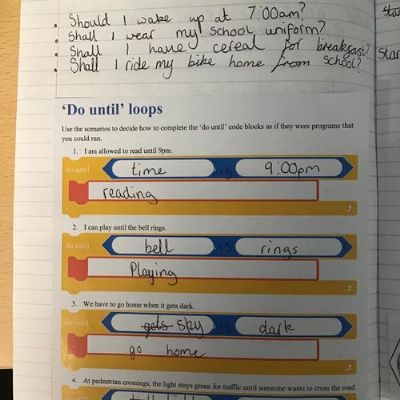 Should I wake up at 7:00am?
Shall I wear my school uniform?
Shall I have cereal for breakfast?
Shall I ride my bike home from school?
'Do until' loops
Use the scenarios to decide how to complete the 'do until' code blocks as if they were programs that
you could run.
1. I am allowed to read until 9pm.
do until time is 9:00pm
reading
2. I can play until the bell rings.
do until bell is rings
Playing
3. We have to go home when it gets dark.
do until sky is dark
go home
4. At pedestrian crossings, the light stays green for traffic until someone wants to cross the road.